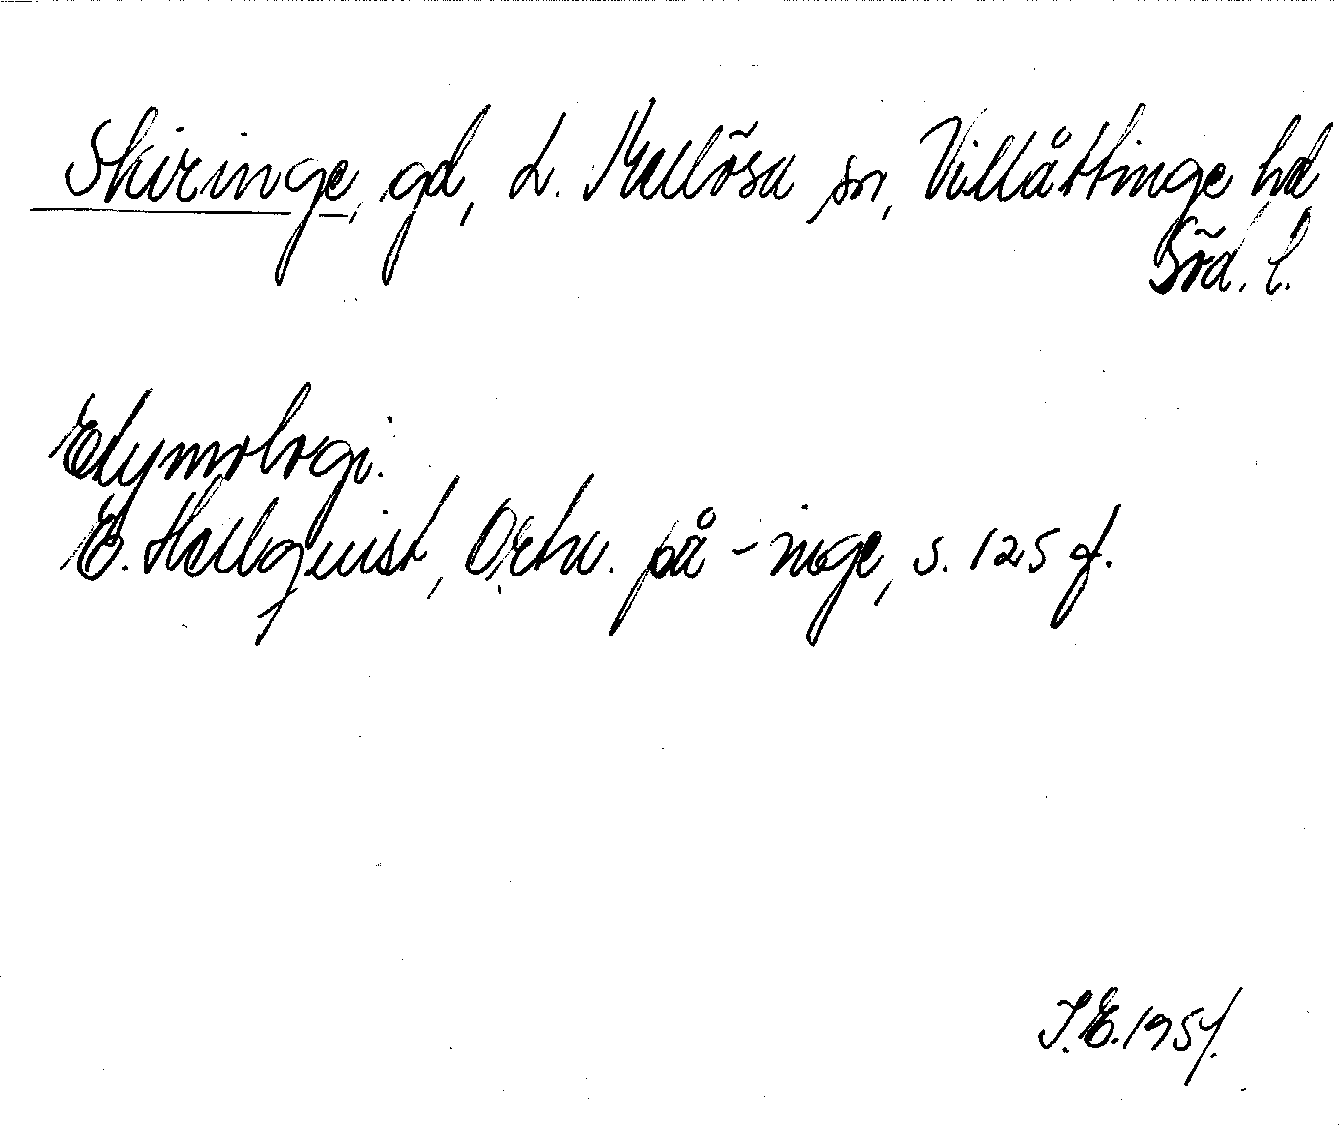 Skiringe, gd, L. Mellösa sn, Villåttinge hd
Söd. l.
Etymologi.
E. Hellquist, Ortn. på -inge, s. 125 f.
I. E. 1957.